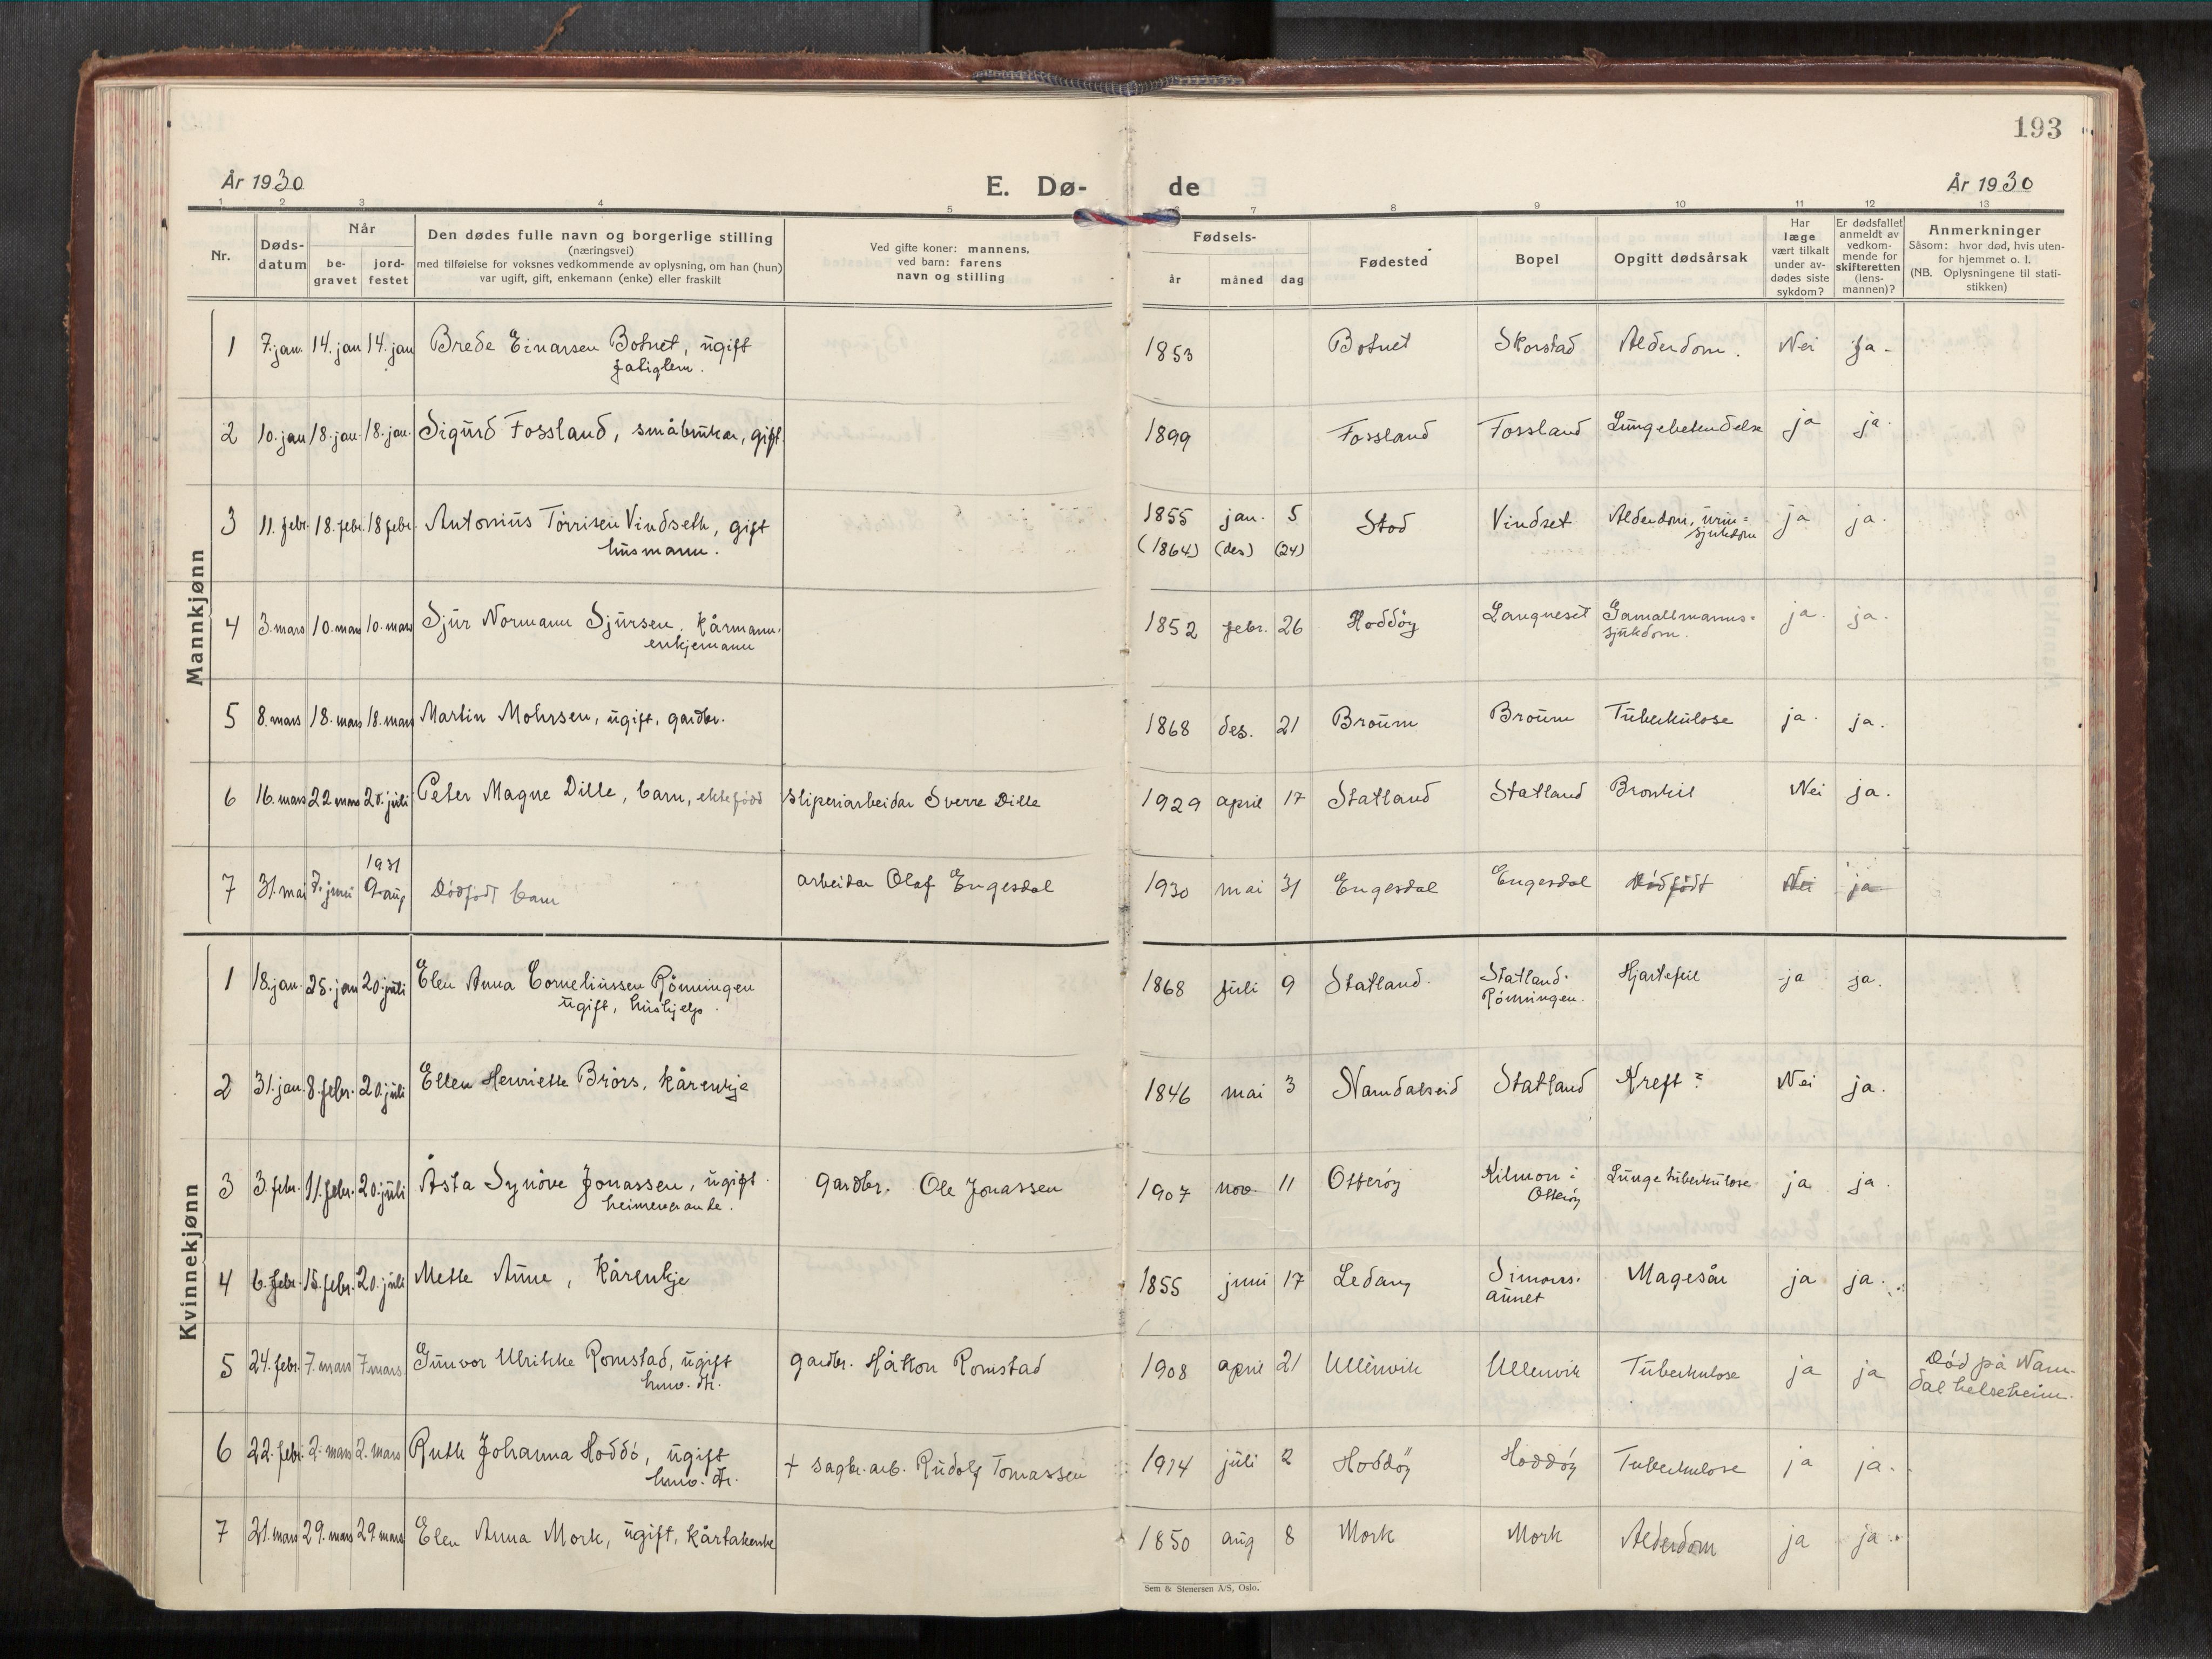 193
År 1930
E. Dø- de
År 1930
1 2 3 4 5 6 7 8 9 10 11 12 13
Nr.
Døds-
datum
Når
be-
gravet
jord-
festet
Den dødes fulle navn og borgerlige stilling
(næringsvei)
med tilføielse for voksnes vedkommende av oplysning, om han (hun)
var ugift, gift, enkemann (enke) eller fraskilt
Ved gifte koner: mannens,
ved barn: farens
navn og stilling
Fødsels-
år måned dag
Fødested
Bopel
Opgitt dødsårsak
Har
læge
vært tilkalt
under av-
dødes siste
sykdom?
Er dødsfallet
anmeldt av
vedkom-
mende for
skifteretten
(lens-
mannen)?
Anmerkninger
Såsom: hvor død, hvis uten-
for hjemmet o. l.
(NB. Oplysningene til stati-
stikken)
Mannkjønn
1 7. jan. 14. jan 14. jan Brede Einarsen Botnet, ugift 1853 Botnet Skorstad Alderdom. Nei Ja.
2 10. jan 18. jan. 18. jan. Sigurd Fossland, småbruker, gift 1899 Fossland Fossland Lungebetendelse ja ja.
3 11. febr. 18. febr. 18 febr. Antonius Torrisen Vindseth, gift 1855 jan. 5 Stod Vindset Alderdom, urin=
husmann. (1864) (des) (24) sjukdom ja ja.
4 3. mars 10. mars 10. mars Sjur Normann Sjursen. Kårmann, 1852 febr. 26 Hoddöy Langneset Gamallmanns=
enkjemann sjukdom. ja. ja.
5 8. mars 18. mars 18. mars Martin Mohrsen, ugift, gardbr. 1868 des. 21 Broum Broum Tuberkulose ja. ja.
6 16. mars 22 mars 20. juli Peter Magne Dille, barn, ektefödd Sliperiarbeidar Sverre Dille 1929 april 17 Statland Statland Bronkit Nei ja.
1931
7 31. mai 7. juni 9. aug Dödfödt barn arbeidar Olaf Engesdal 1930 mai 31 Engesdal Engesdal Dödfödt Nei ja
Kvinnekjønn
1 18. jan. 25. jan 20. juli Elen Anna Corneliussen Rönningen 1868 juli 9 Statland. Statland. Hjartefeil ja ja.
ugift, hushjelp. Rönningen.
2 31. jan. 8. febr. 20. juli Ellen Henriette Brörs, kårenkje 1846 mai 3 Namdalseid Statland Kreft? Nei ja.
3 3 febr. 11. febr. 20. juli Åsta Synöve Jonassen, ugift gardbr. Ole Jonassen 1907 nov. 11 Otteröy i Lungetuberkulose ja ja.
heimeverande. Otteröy
4 6. febr. 15. febr. 20. juli Mette Anne, kårenkje 1855 juni 17 Ledang Simons- Magesår ja ja.
aunet
5 24. febr. 7. mars 7 mars Gunvor Ulrikke Romstad, ugift gardbr. Romstad 1908 april 21 Ullenvik Ullenvik Tuberkulose ja ja Död på Nam-
dal helseheim.
6 22. febr. 2. mars 2. mars Ruth Johanna Hoddö, ugift + sagbr. arb. Rudolf Tomassen 1914 juli 2 Hoddöy Hoddöy Tuberkulose ja ja.
7 21. mars 29. mars 29. mars Elen Anna Mork, ugift, kårtakerske 1850 aug 8 Mork Mork Alderdom ja ja.
Sem & Stenersen A/S, Oslo.